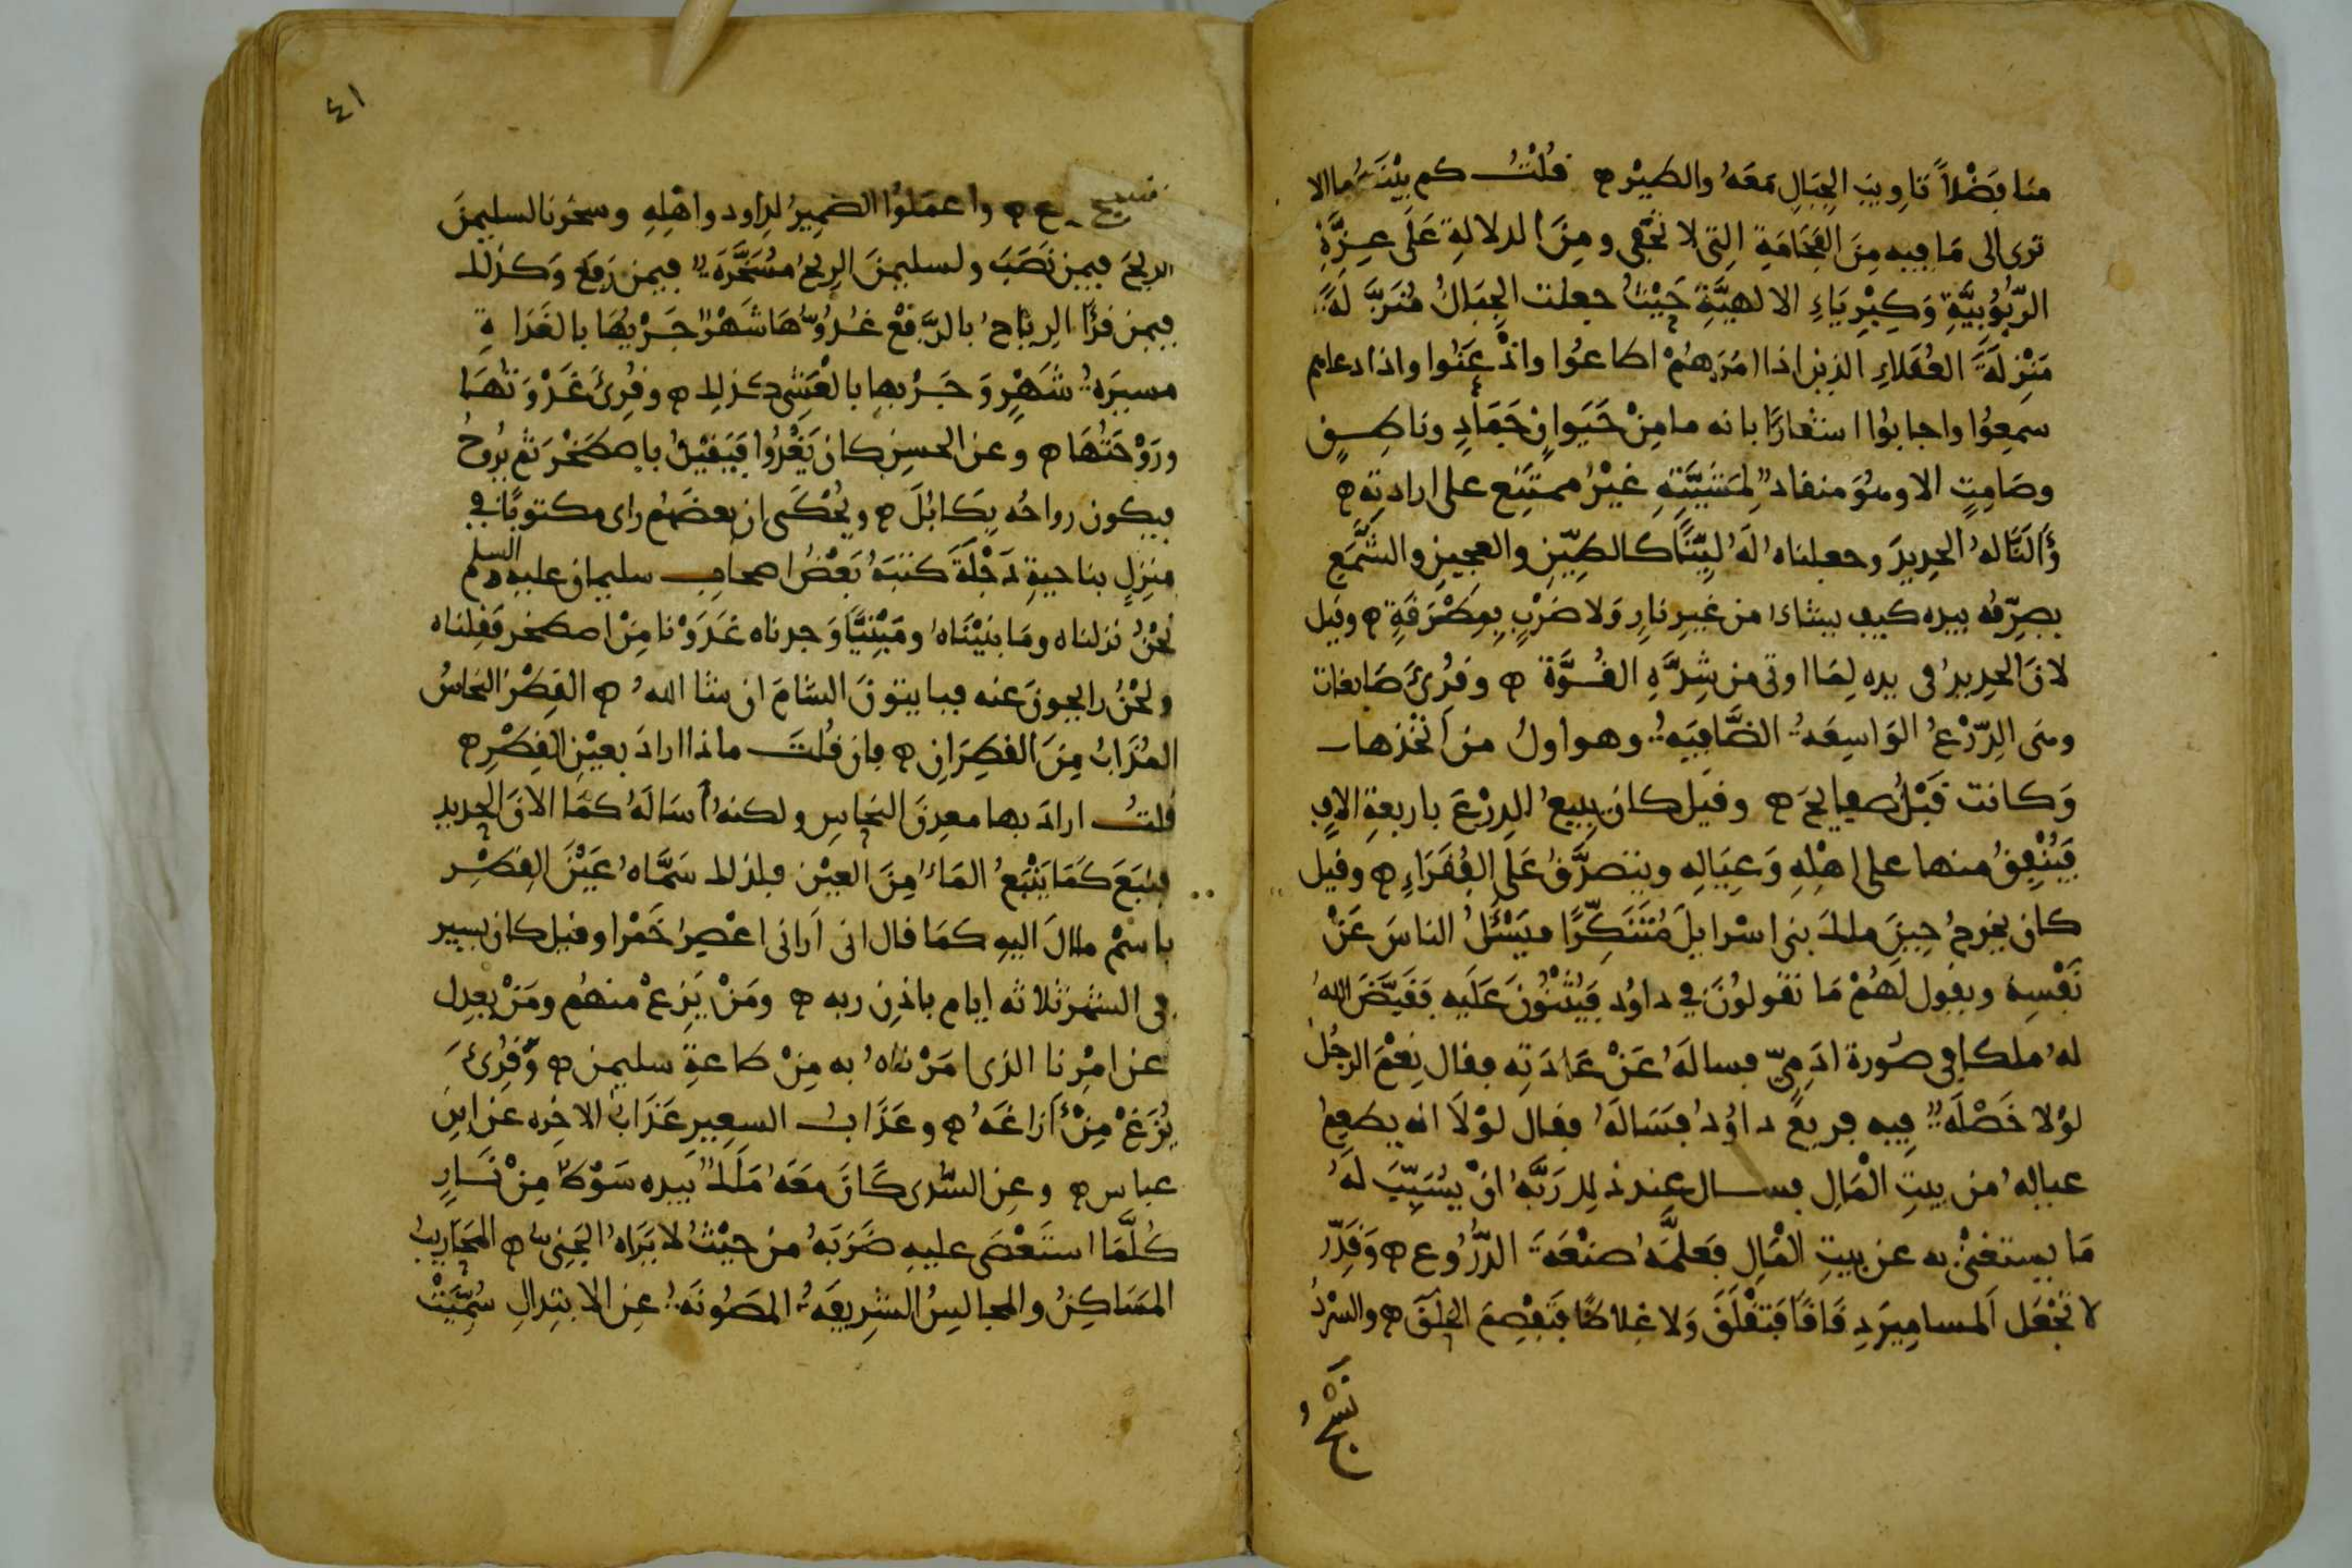 منا فضلا تاويب الجبال معه والطير ه قلت كم بينهما الا
ترى الى ما فيه من الفخامة التى لا تخفى ومن الدلالة على عزة
الربوبية وكبرياء الالهية حيث جعلت الجبال منزلة
منزلة العقلاء الذين اذا امرهم اطاعوا واذعنوا واذا دعاهم
سمعوا واجابوا اشعارا بانه ما من حيوان وجماد وناطق
وصامت الا وهو منقاد لمشيته غير ممتنع على ارادته ه
وألنا له الحديد وجعلناه له لينا كالطين والعجين والشمع
يصرفه بيده كيف يشاء من غير نار ولا ضرب بمطرقة ه وقيل
لان الحديد فى يده لما اوتى من شدة القوة ه وقرئ صابغات
وهى الدرع الواسعة الضافية وهو اول من اتخذها
وكانت قبل صفايح ه وقيل كان يبيع الدرع باربعة الاف
فينفق منها على اهله وعياله ويتصدق على الفقراء ه وقيل
كان يخرج حين ملك بنى اسرايل متنكرا فيسئل الناس عن
نفسه ويقول لهم ما تقولون في داود فيثنون عليه فقيض الله
له ملكا فى صورة ادمي فساله عن عادته فقال نعم الرجل
لولا خصلة فيه فريع داود فساله فقال لولا انه يطعم
عياله من بيت المال فسال عند ذلك ربه ان يسبب له
ما يستغنى به عن بيت المال فعلمه صنعة الدروع ه وقدر
لا تجعل المسامير د قاقا فتقلق ولا غلاظا فتفصم الحلق ه والسرد
نسج
٤١
نسج ه واعملوا الضمير لداود واهله وسخرنا لسليمن
الريح فيمن نصب ولسليمن الريح مسخرة فيمن رفع وكذلك
فيمن قرأ الرياح بالرفع غدوها شهر جريها بالغداة
مسيرة شهر وجريها بالعشى كذلك ه وقرئ غدوتها
وروحتها ه وعن الحسن كان يغدوا فيقيل باصطخر ثم يروح
فيكون رواحه بكابل ه ويحكى ان بعضهم راى مكتوبا في
منزل بناحية دجلة كتبه بعض اصحاب سليمان عليه السلم
نحن نزلناه وما بنيناه ومبنيا وجدناه غدونا من اصطخر فقلناه
ونحن رايحون عنه فبايتون الشام ان شا الله ه القطر النحاس
المذاب من القطران ه فان قلت ماذا اراد بعين القطر ه
قلت اراد بها معدن النحاس ولكنه أساله كما الان الحديد
فنبع كما ينبع الماء من العين فلذلك سماه عين القطر
باسم ما ال اليه كما قال انى أرانى اعصر خمرا وقيل كان يسير
فى الشهر ثلاثه ايام باذن ربه ه ومن يزغ منهم ومن يعدل
عن امرنا الذى امرناه به من طاعة سليمن ه وقرئ
يزغ من أزاغه ه وعذاب السعير عذاب الاخره عن ابن
عباس ه وعن السدى كان معه ملك بيده سوط من نار
كلما استعصى عليه ضربه من حيث لا يراه الجنى ه المحاريب
المساكن والمجالس الشريفة المصونة عن الابتدال سميت